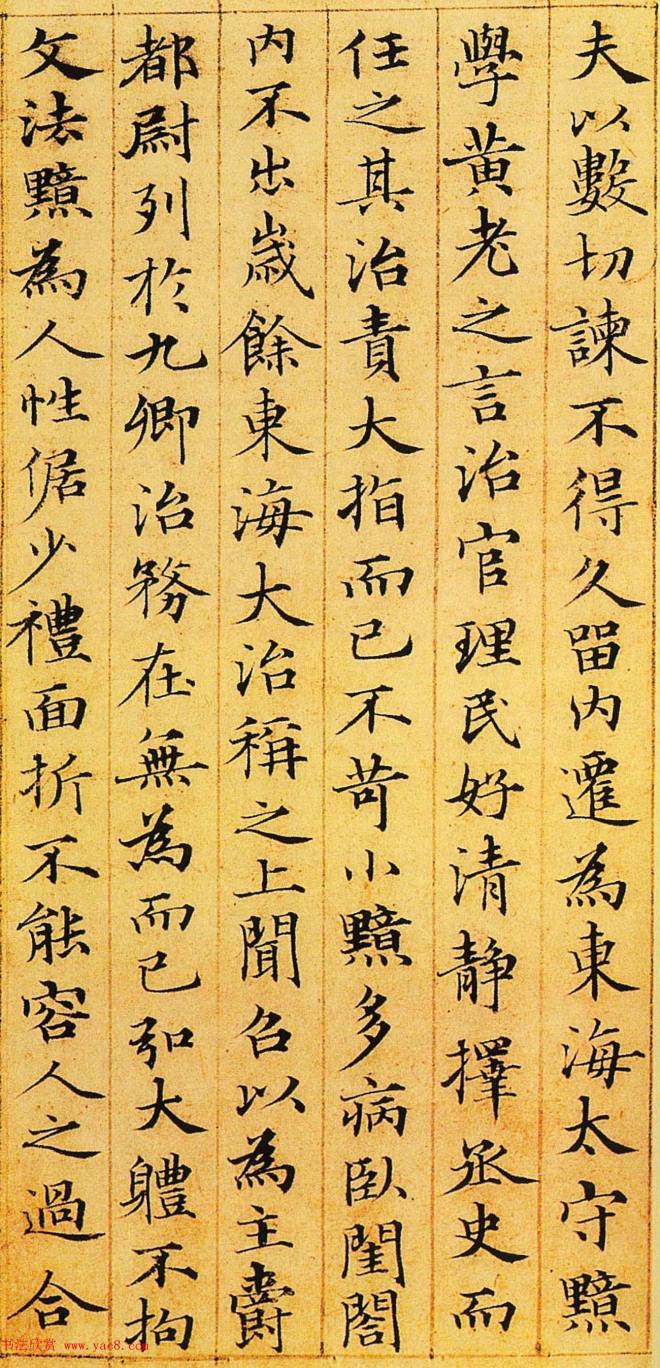 夫以數切諫不得久留内遷為東海太守黯
學黄老之言治官理民好清静擇丞史而
任之其治責大指而已不苛小黯多病臥閨閤
内不出歲餘東海大治稱之上聞召以為主爵
都尉列於九卿治務在無為而已弘大軆不拘
文法黯為人性倨少禮面折不能容人之過合
书法欣赏 www.yac8.com